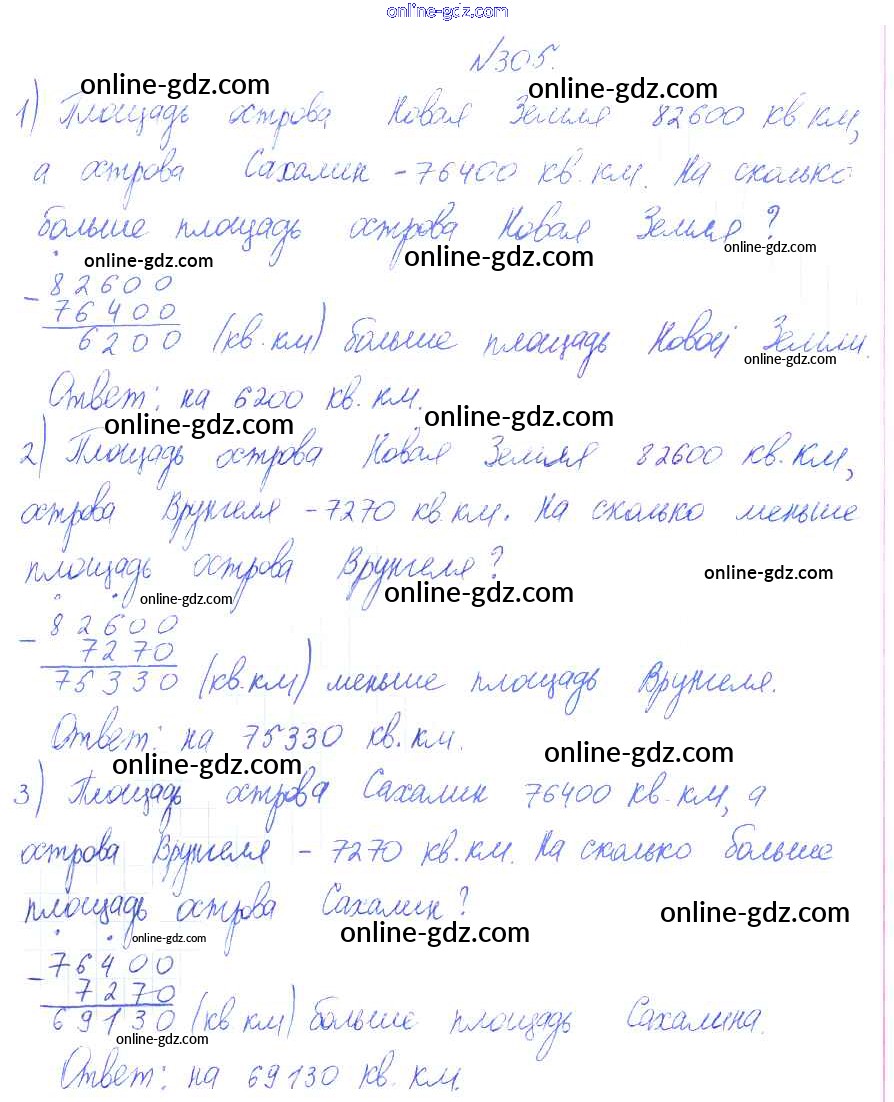 online-gdz.com
№305.
online-gdz.com online-gdz.com
1) Площадь острова Новая Земля 82600 кв км,
а острова Сахалин - 76400 кв. км. На сколько
больше площадь острова Новая Земля?
online-gdz.com online-gdz.com online-gdz.com
- 82600
76400
6200 (кв. км) больше площадь Новой Земли.
online-gdz.com
Ответ: на 6200 кв. км.
online-gdz.com online-gdz.com
2) Площадь острова Новая Земля 82600 кв. км,
острова Врунгеля - 7270 кв. км. На сколько меньше
площадь острова Врунгеля?
online-gdz.com online-gdz.com online-gdz.com
- 82600
7270
75330 (кв. км) меньше площадь Врунгеля.
Ответ: на 75330 кв. км.
online-gdz.com online-gdz.com
3) Площадь острова Сахалин 76400 кв. км, а
острова Врунгеля - 7270 кв. км. На сколько больше
площадь острова Сахалин?
online-gdz.com online-gdz.com online-gdz.com
- 76400
7270
69130 (кв км) больше площадь Сахалина.
online-gdz.com
Ответ: на 69130 кв. км.